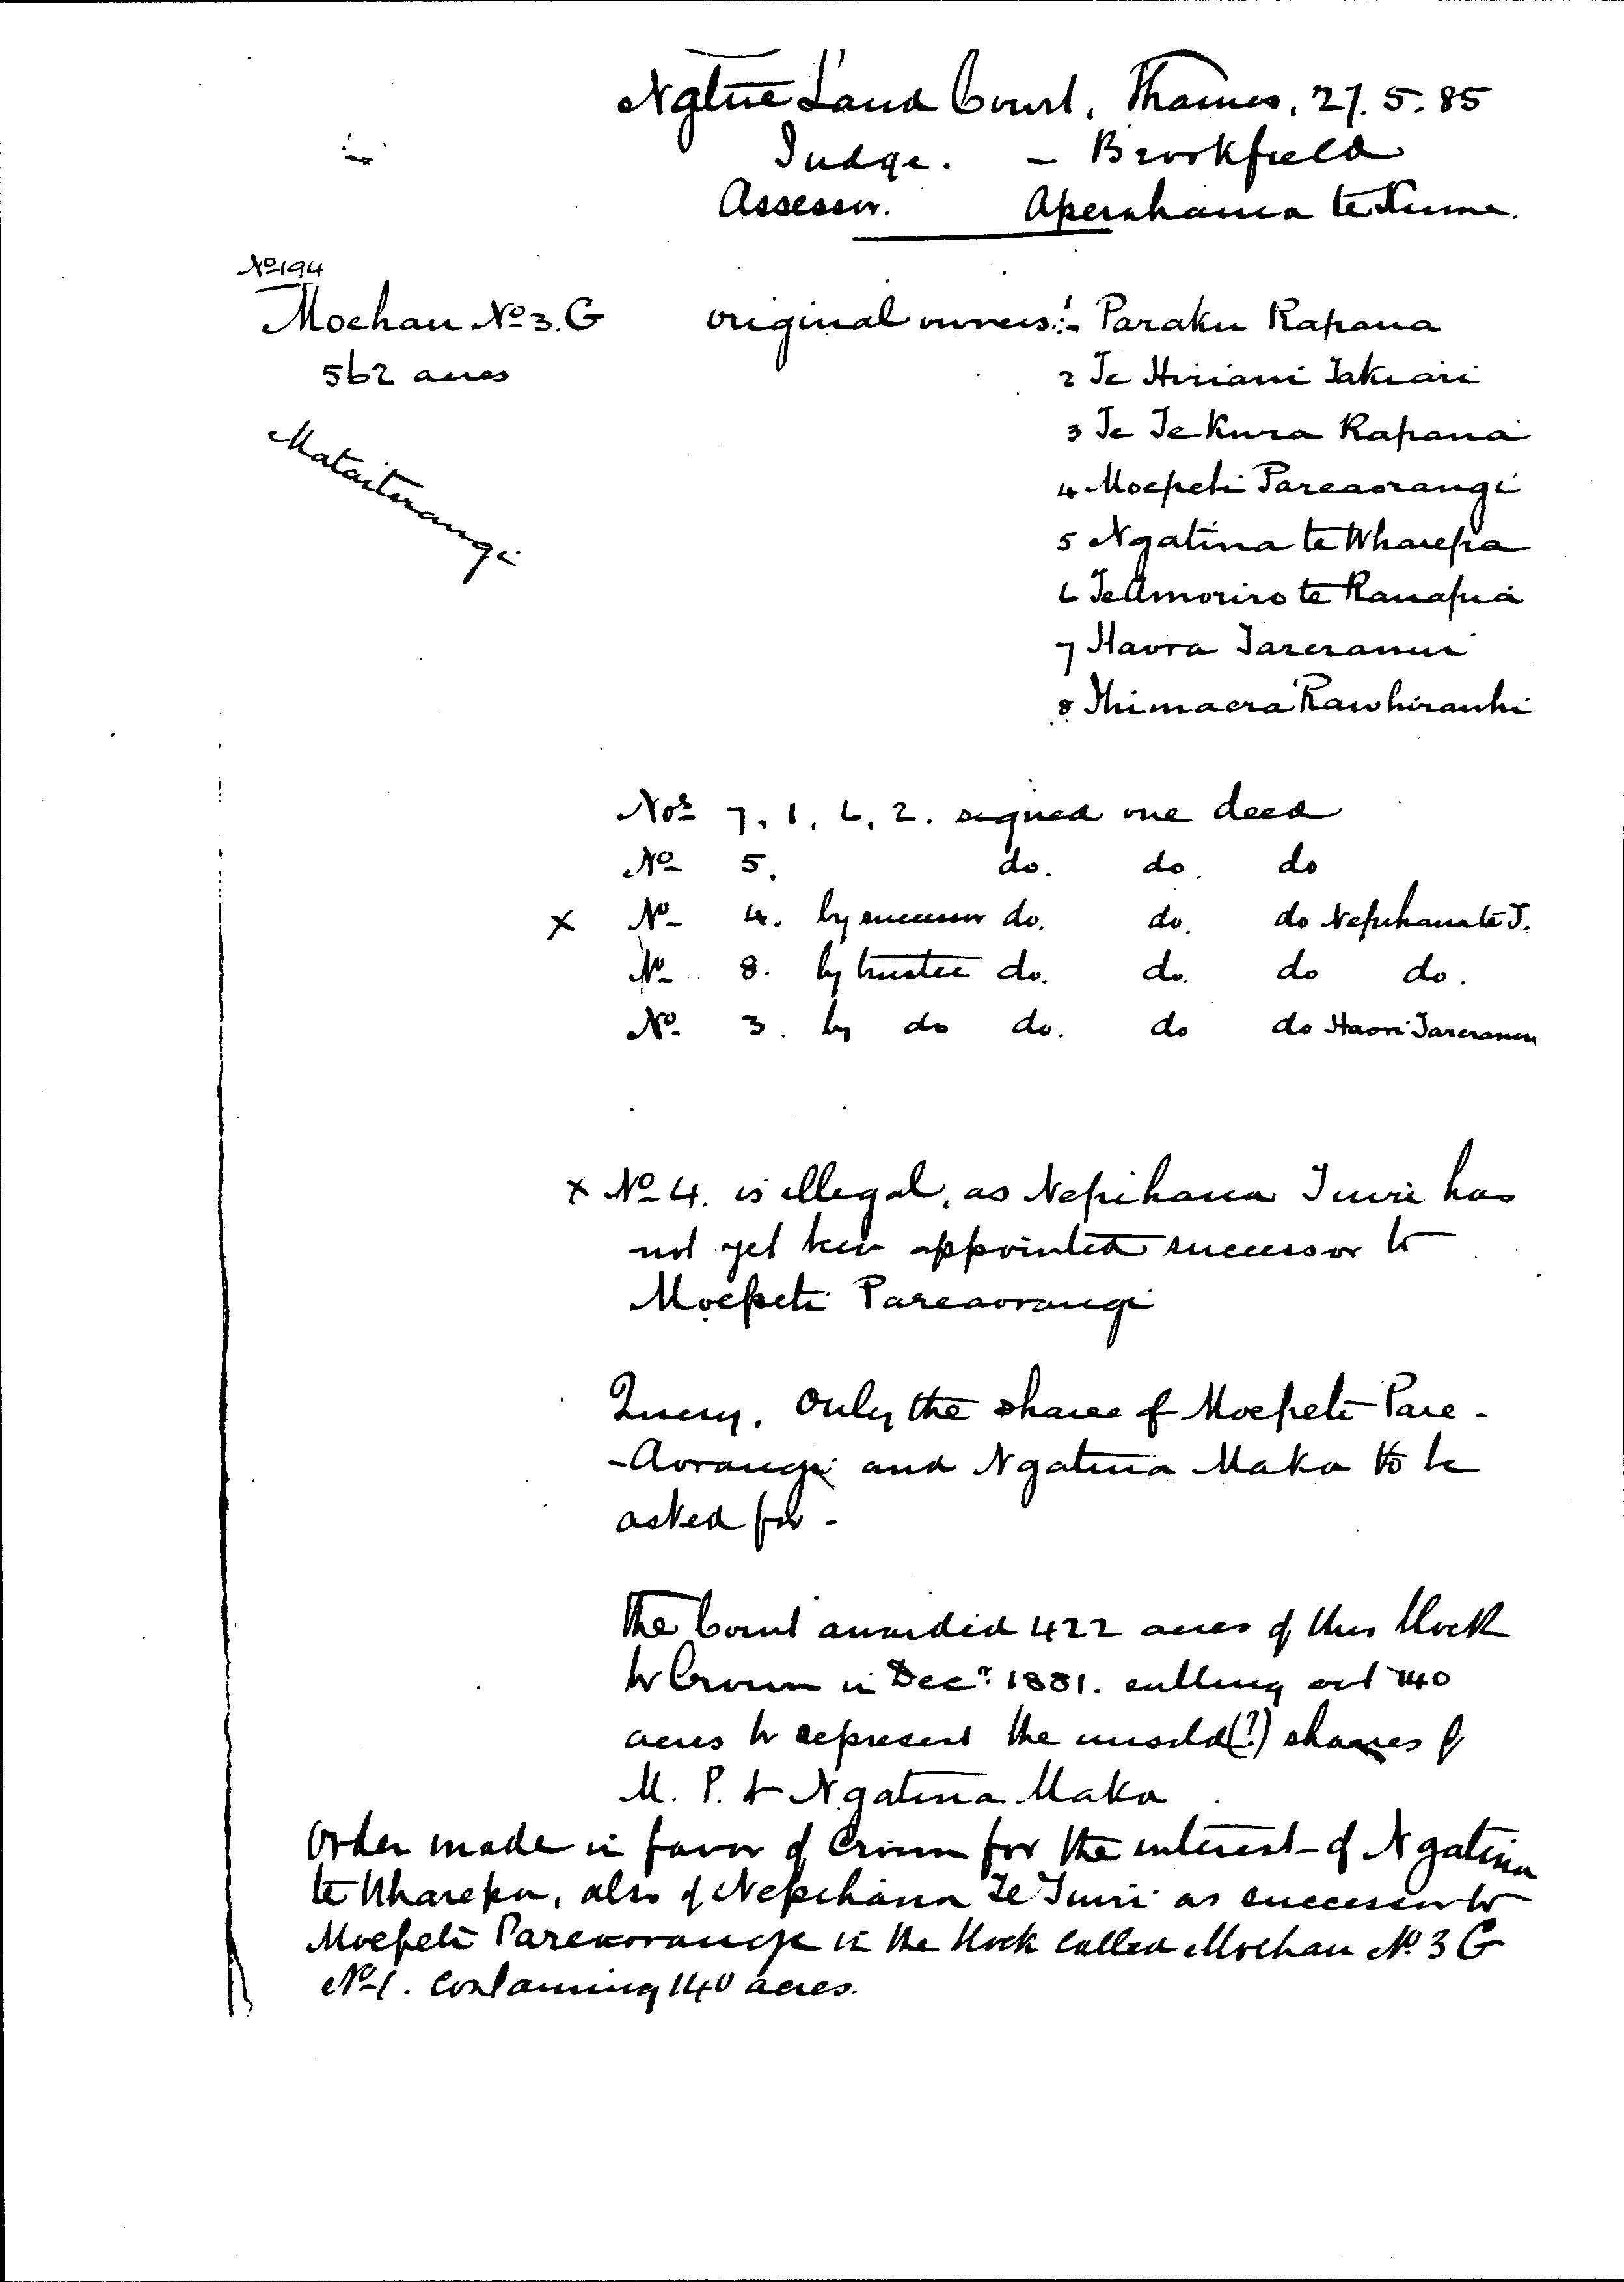 Native Land Court, Thames, 27.5.85
Judge. - Brookfield
Assessor. Aperahama te Kume.
No 194
Moehau No 3.G original owners:- 1 Paraku Rapana
562 acres 2 Te Hiriani Takiari
3 Te Te Kura Rapana
Mataiterangi
4 Moepeti Pareaorangi
5 Ngatina te Wharepa
6 Te Amoriro te Ranapia
7 Haora Tareranui
8 Ihimaera Rawhirauhi
Nos 7, 1, 6, 2. signed one deed
No 5. do. do. do
x No 4. by successor do. do. do Nepihana te T.
No 8. by trustee do. do. do do.
No 3. by do do. do do Haori Tareranui
x No 4. is illegal, as Nepihana Tuiri has
not yet been appointed successor to
Moepeti Pareaorangi
Query. Only the shares of Moepeti Pare-
-Aorangi and Ngatina Maka to be
asked for -
The Court awarded 422 acres of this block
to Crown in Decr. 1881. cutting out 140
acres to represent the unsold(?) shares of
M. P. & Ngatina Maka
Order made in favor of Crown for the interest of Ngatina
te Wharepa, also of Nepihana Te Tuiri as successor to
Moepeti Pareaorangi in the block called Moehau No. 3 G
No 1. containing 140 acres.